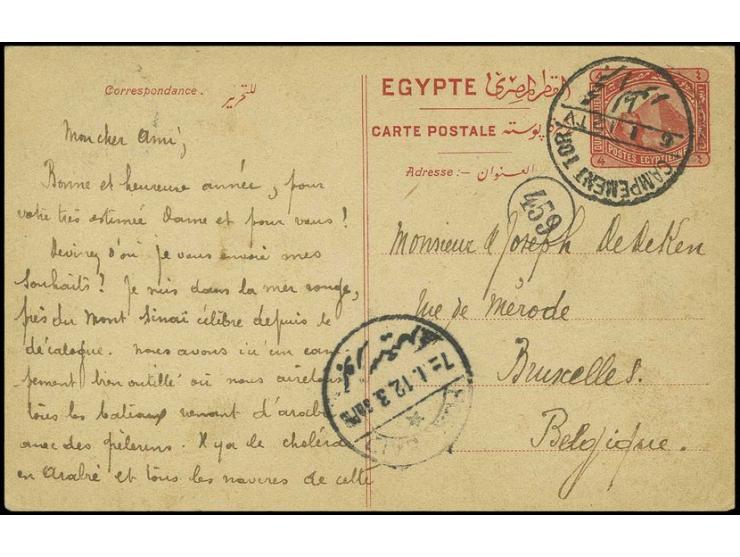 Correspondance. للتحرير
Mon cher Ami,
Bonne et heureuse année, pour
votre très estimée Dame et pour vous!
Devinez d'où je vous envoie mes
souhaits? Je suis dans la mer rouge,
près du Mont Sinaï célèbre depuis le
décalogue. Nous avons ici un cam
pement bien outillé où nous arretons
tous les bateaux venant d'arabie
avec des pèlerins. Il y a le choléra
en Arabie et tous les navires de cette
EGYPTE القطر المصري
CARTE POSTALE بوستة
Adresse:- العنوان
Monsieur Joseph DeDeKen
Rue de Mérode
Bruxelles.
Belgique.
CAMPEMENT TOR
4
POSTES EGYPTIENNES
4
459
7 - I. 12. 3.